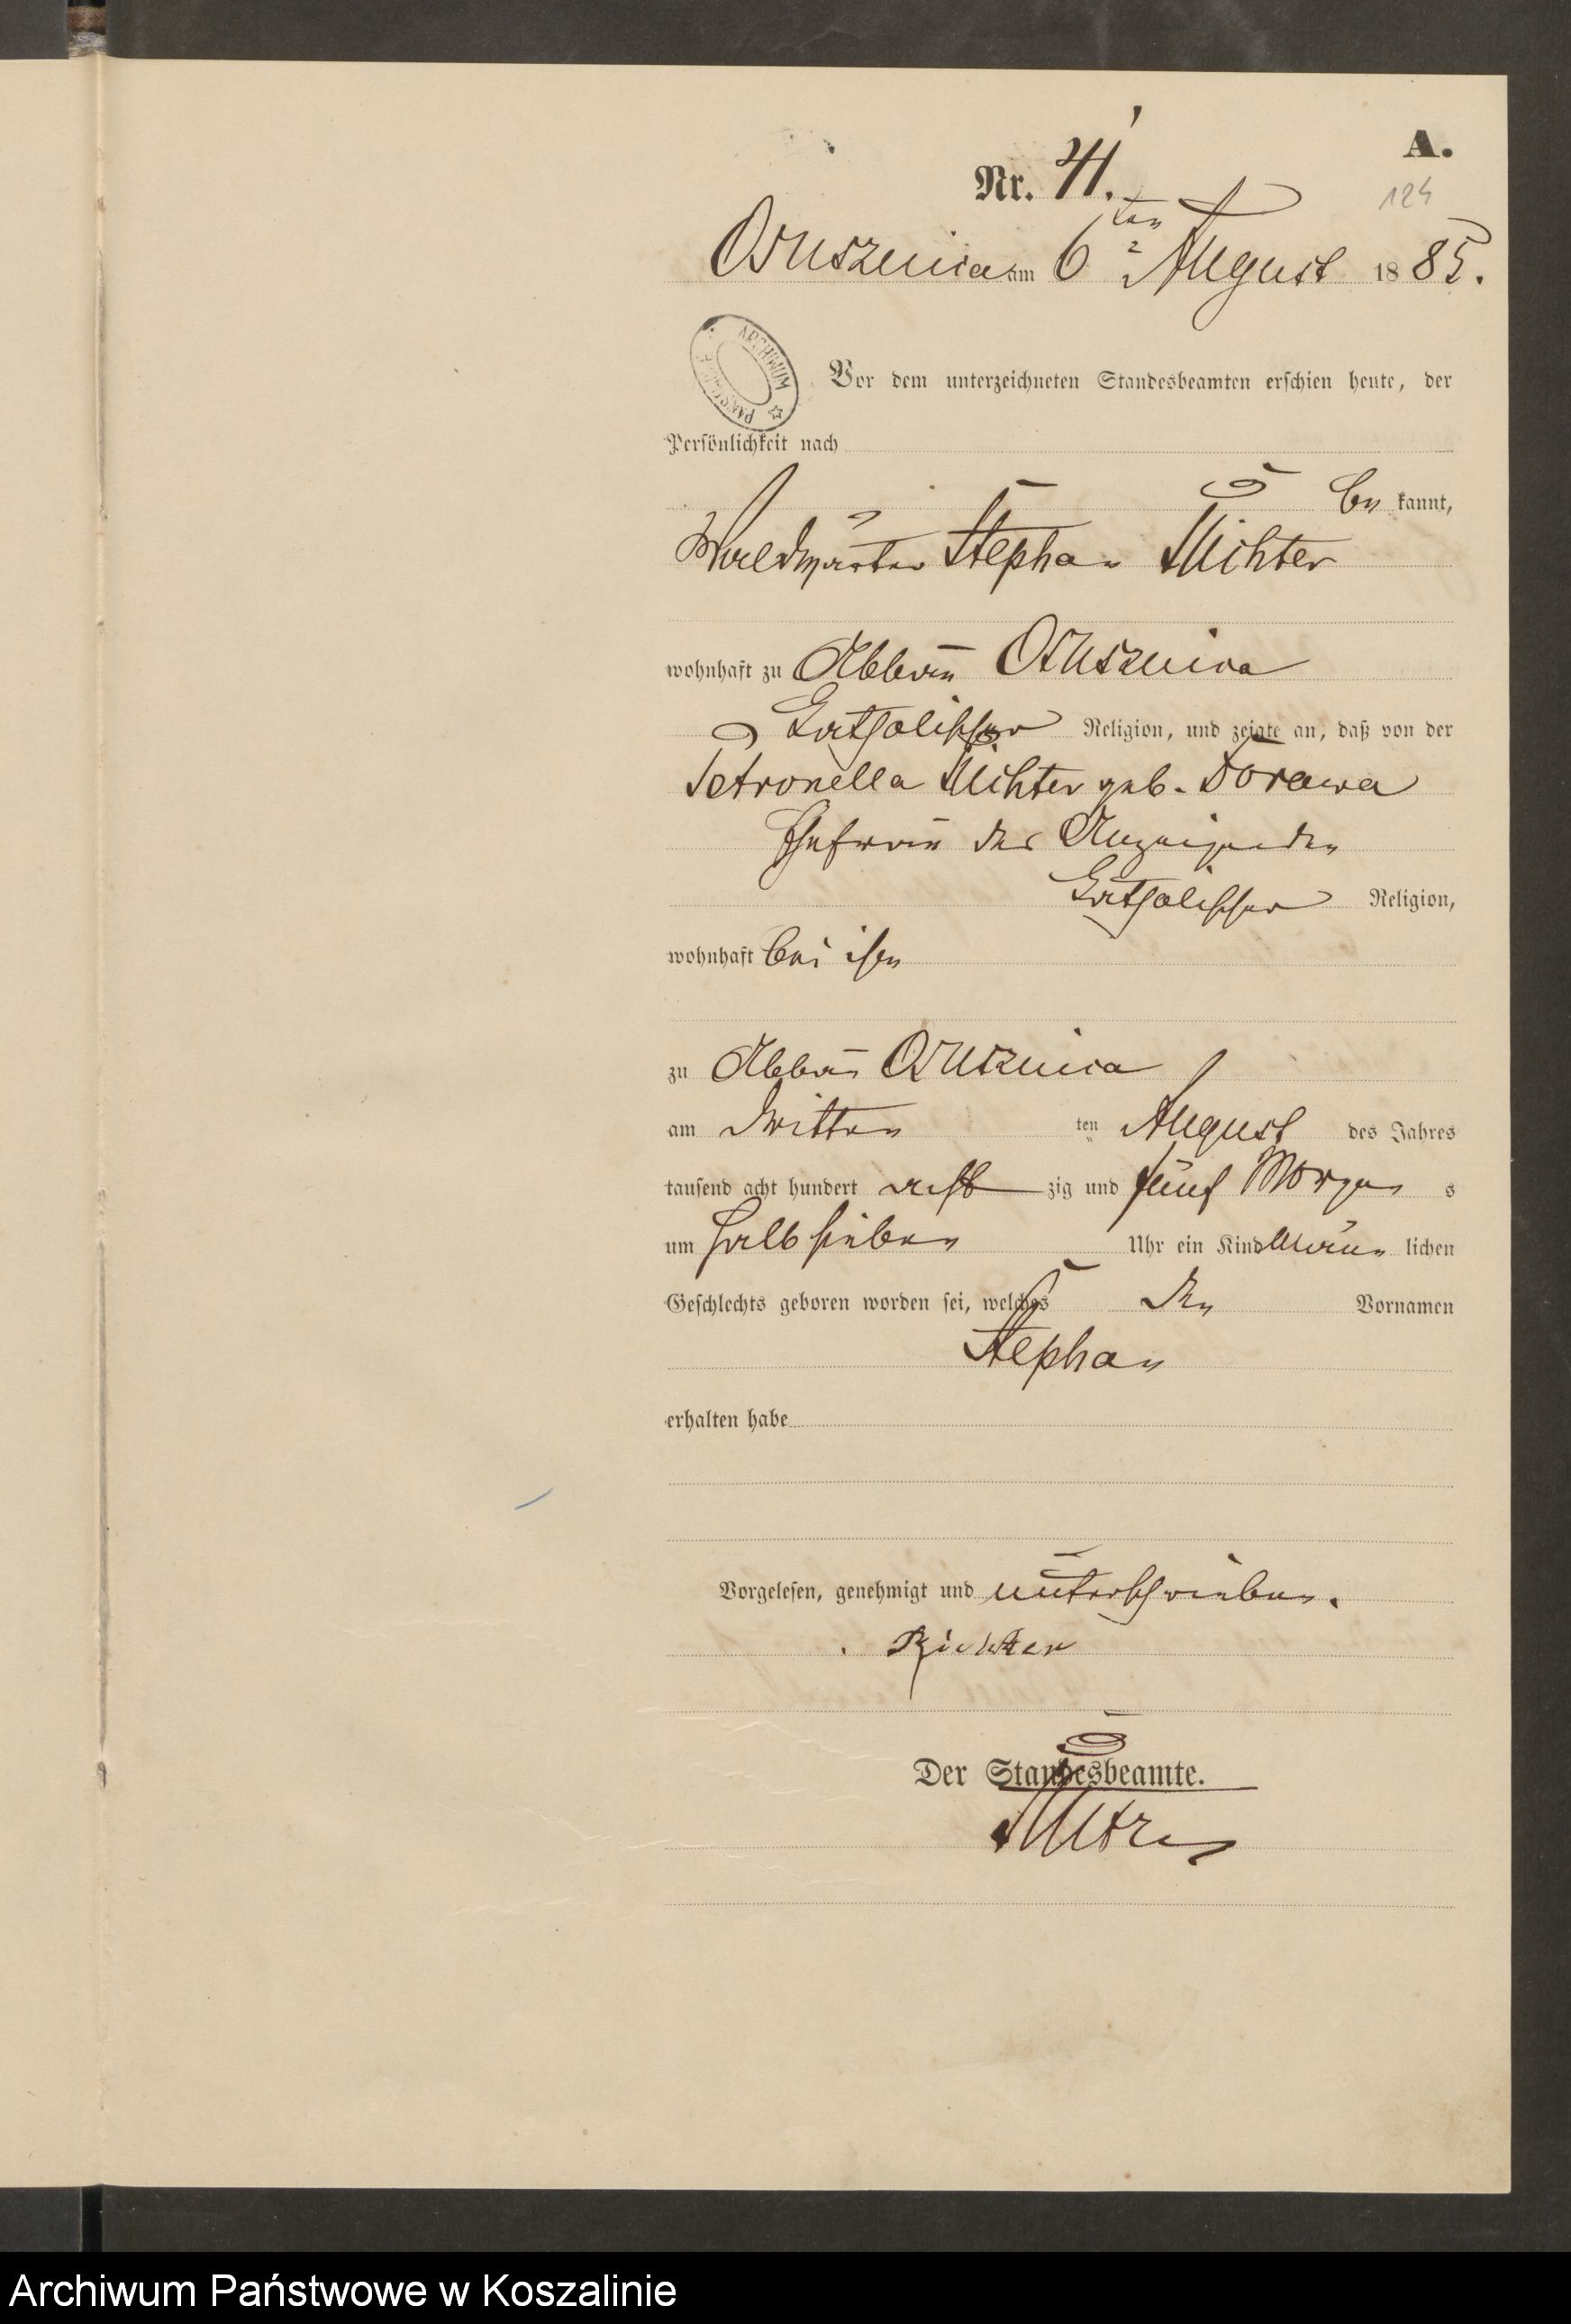 A.
Nr. 41.
124
Ossusznica am 6ten August 1885.
ARCHIWUM PAŃSTWOWE
Vor dem unterzeichneten Standesbeamten erschien heute, der
Persönlichkeit nach
be kannt,
Waldwärter Stephan Richter
wohnhaft zu Abbau Ossusznica
katholischer Religion, und zeigte an, daß von der
Petronella Richter geb. Dorawa
Ehefrau des Anzeigenden
katholischer Religion,
wohnhaft bei ihm
zu Abbau Ossusznica
am dritten ten August des Jahres
tausend acht hundert acht zig und fünf Morgen s
um halb sieben Uhr ein Kind männ lichen
Geschlechts geboren worden sei, welches den Vornamen
Stephan
erhalten habe
Vorgelesen, genehmigt und unterschrieben.
Richter
Der Standesbeamte.
Archiwum Państwowe w Koszalinie